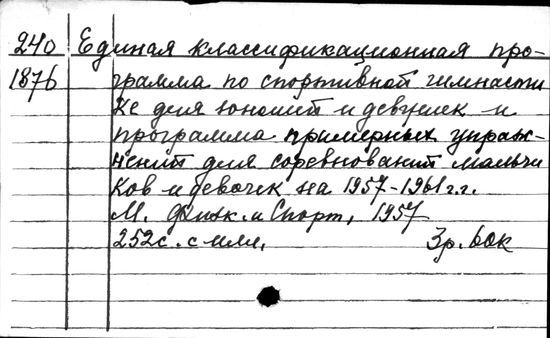 240 Единая классификационная про-
1876 грамма по спортивной гимнасти
ке для юношей и девушек и
программа примерных упраж-
нений для соревнований мальчи
ков и девочек на 1957-1961 г.г.
М. Физк. и Спорт, 1957
252с. с илл. 3р. 60к